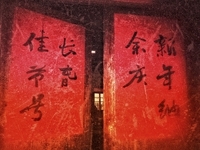 新年纳
余庆
佳节号
长春